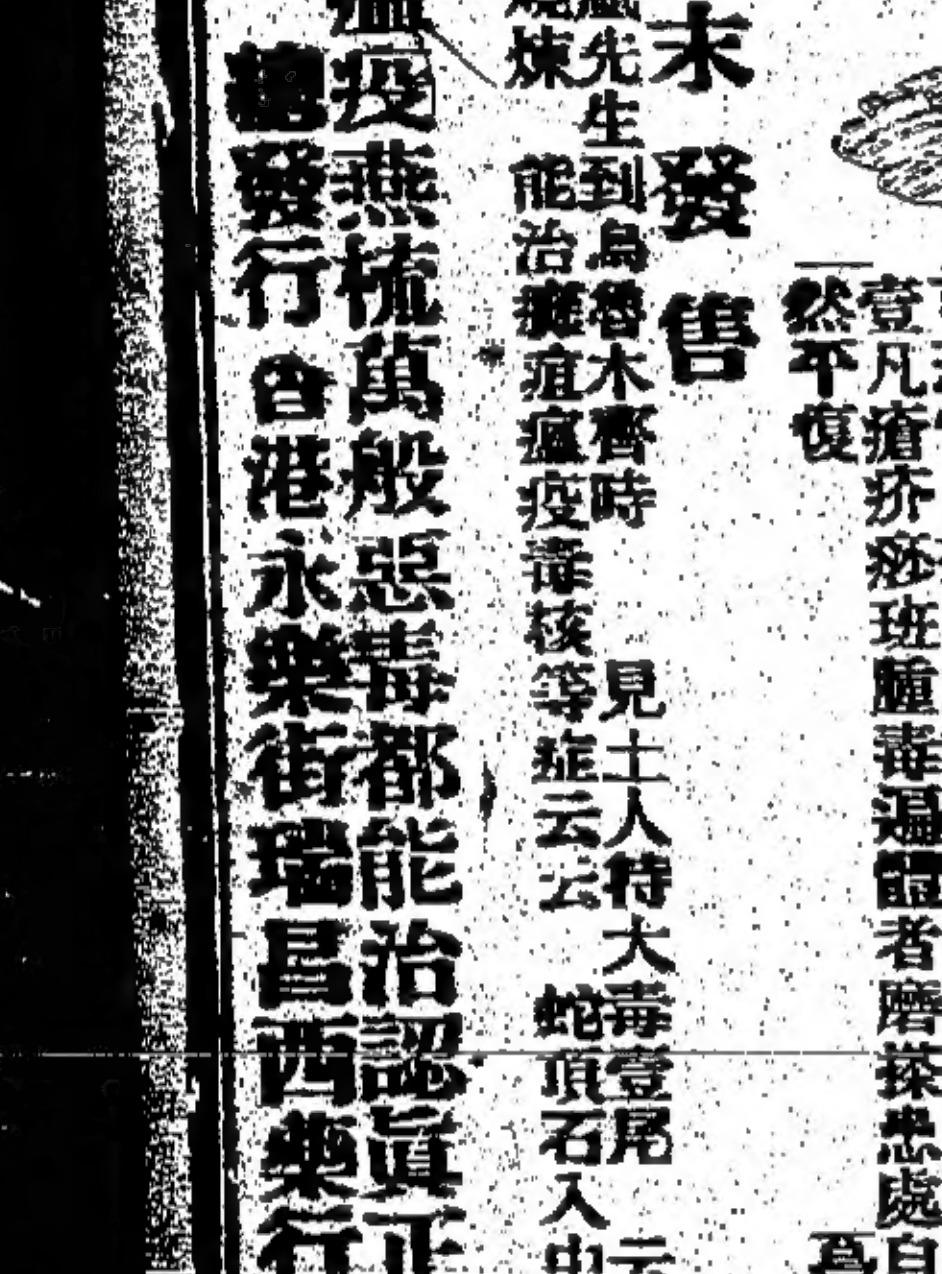 壹凡瘡疥痧班腫毒遍體者磨搽患處自
然平復
末發售
先生到烏魯木齊時 見土人持大毒壹尾 云
煉 能治癰疽瘟疫毒核等症云云 蛇頂石入中
瘟疫燕梳萬般惡毒都能治認眞正
總發行 香港永樂街瑞昌西藥行